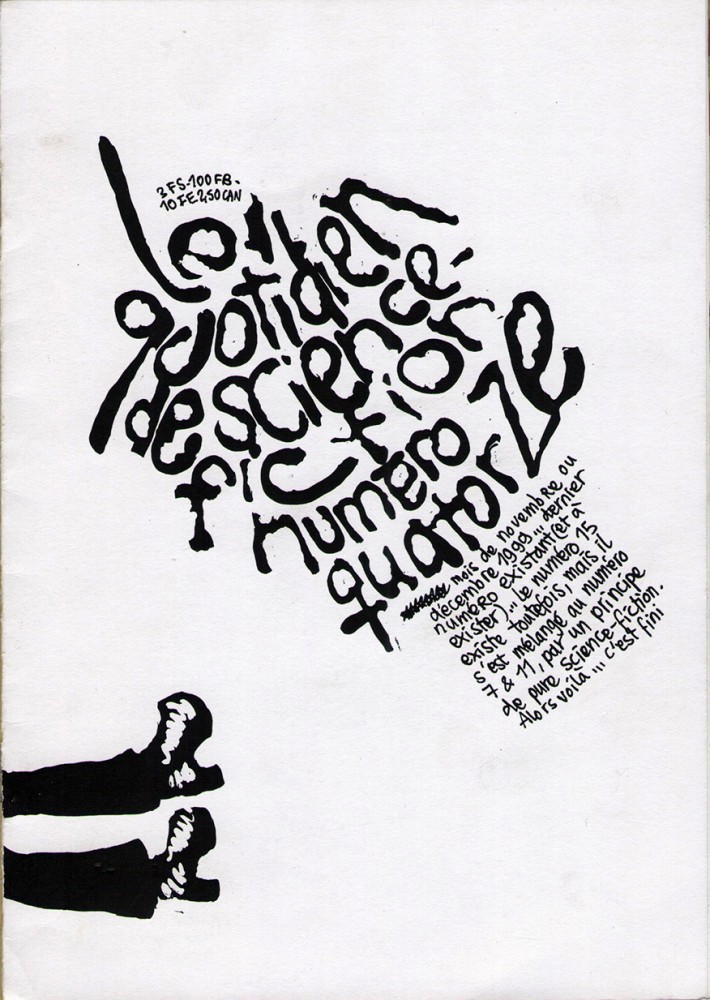 3 FS-100 FB-
10 FF. 2,50 CAN
Le
quotidien
de science-
fiction
numéro
quatorze
mois de novembre ou
décembre 1999... dernier
numéro existant (et à
exister)... Le numéro 15
existe toutefois, mais il
s'est mélangé au numéro
7 & 11, par un principe
de pure science-fiction.
Alors voilà... c'est fini